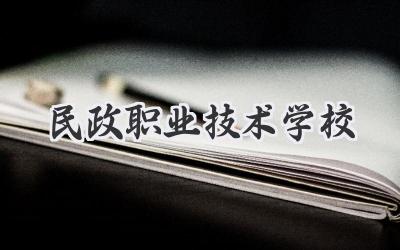 民政职业技术学校